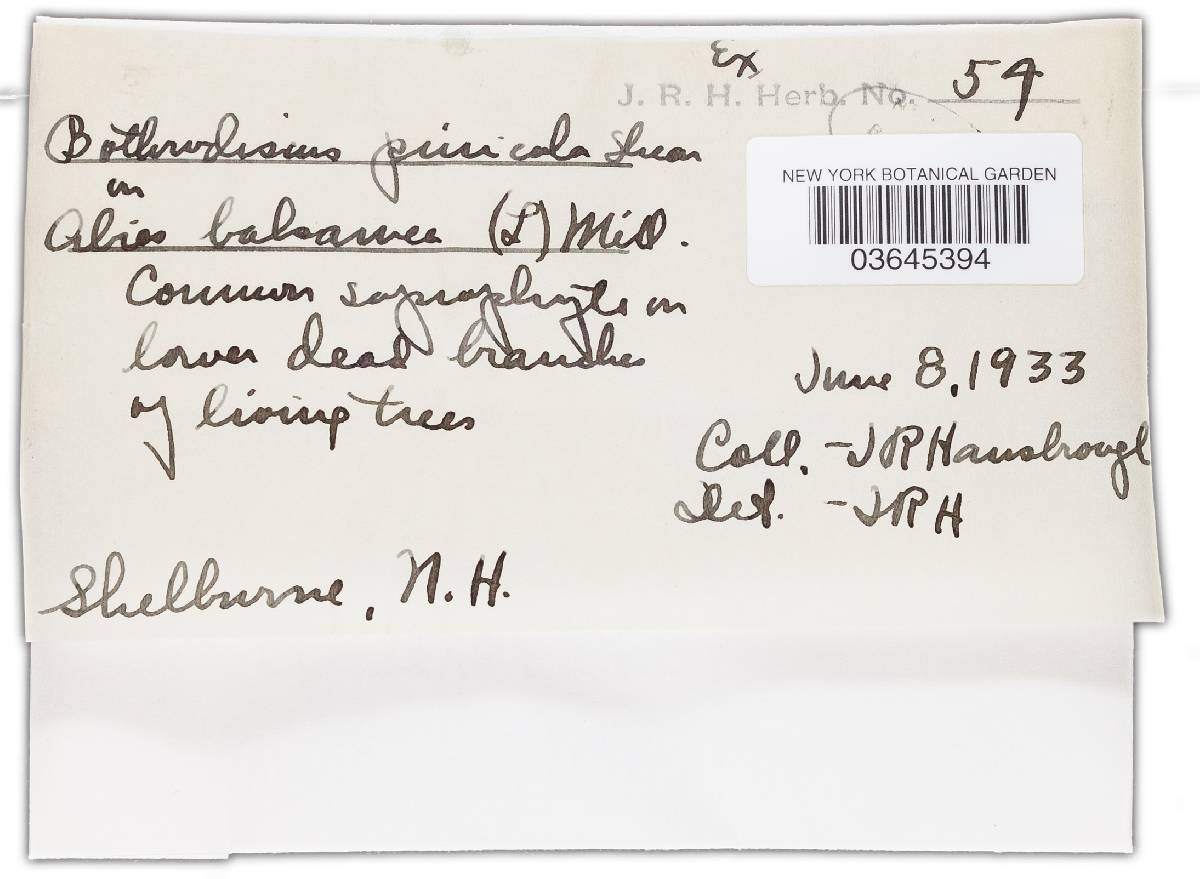 Ex
J. R. H. Herb. No. 54
Bothrodiscus pinicola Shear
on
Abies balsamea (L) Mill.
Common saprophyte on
lower dead branches
of living trees
NEW YORK BOTANICAL GARDEN
03645394
June 8, 1933
Coll. - JRHansbrough
Det. - JRH
Shelburne, N.H.